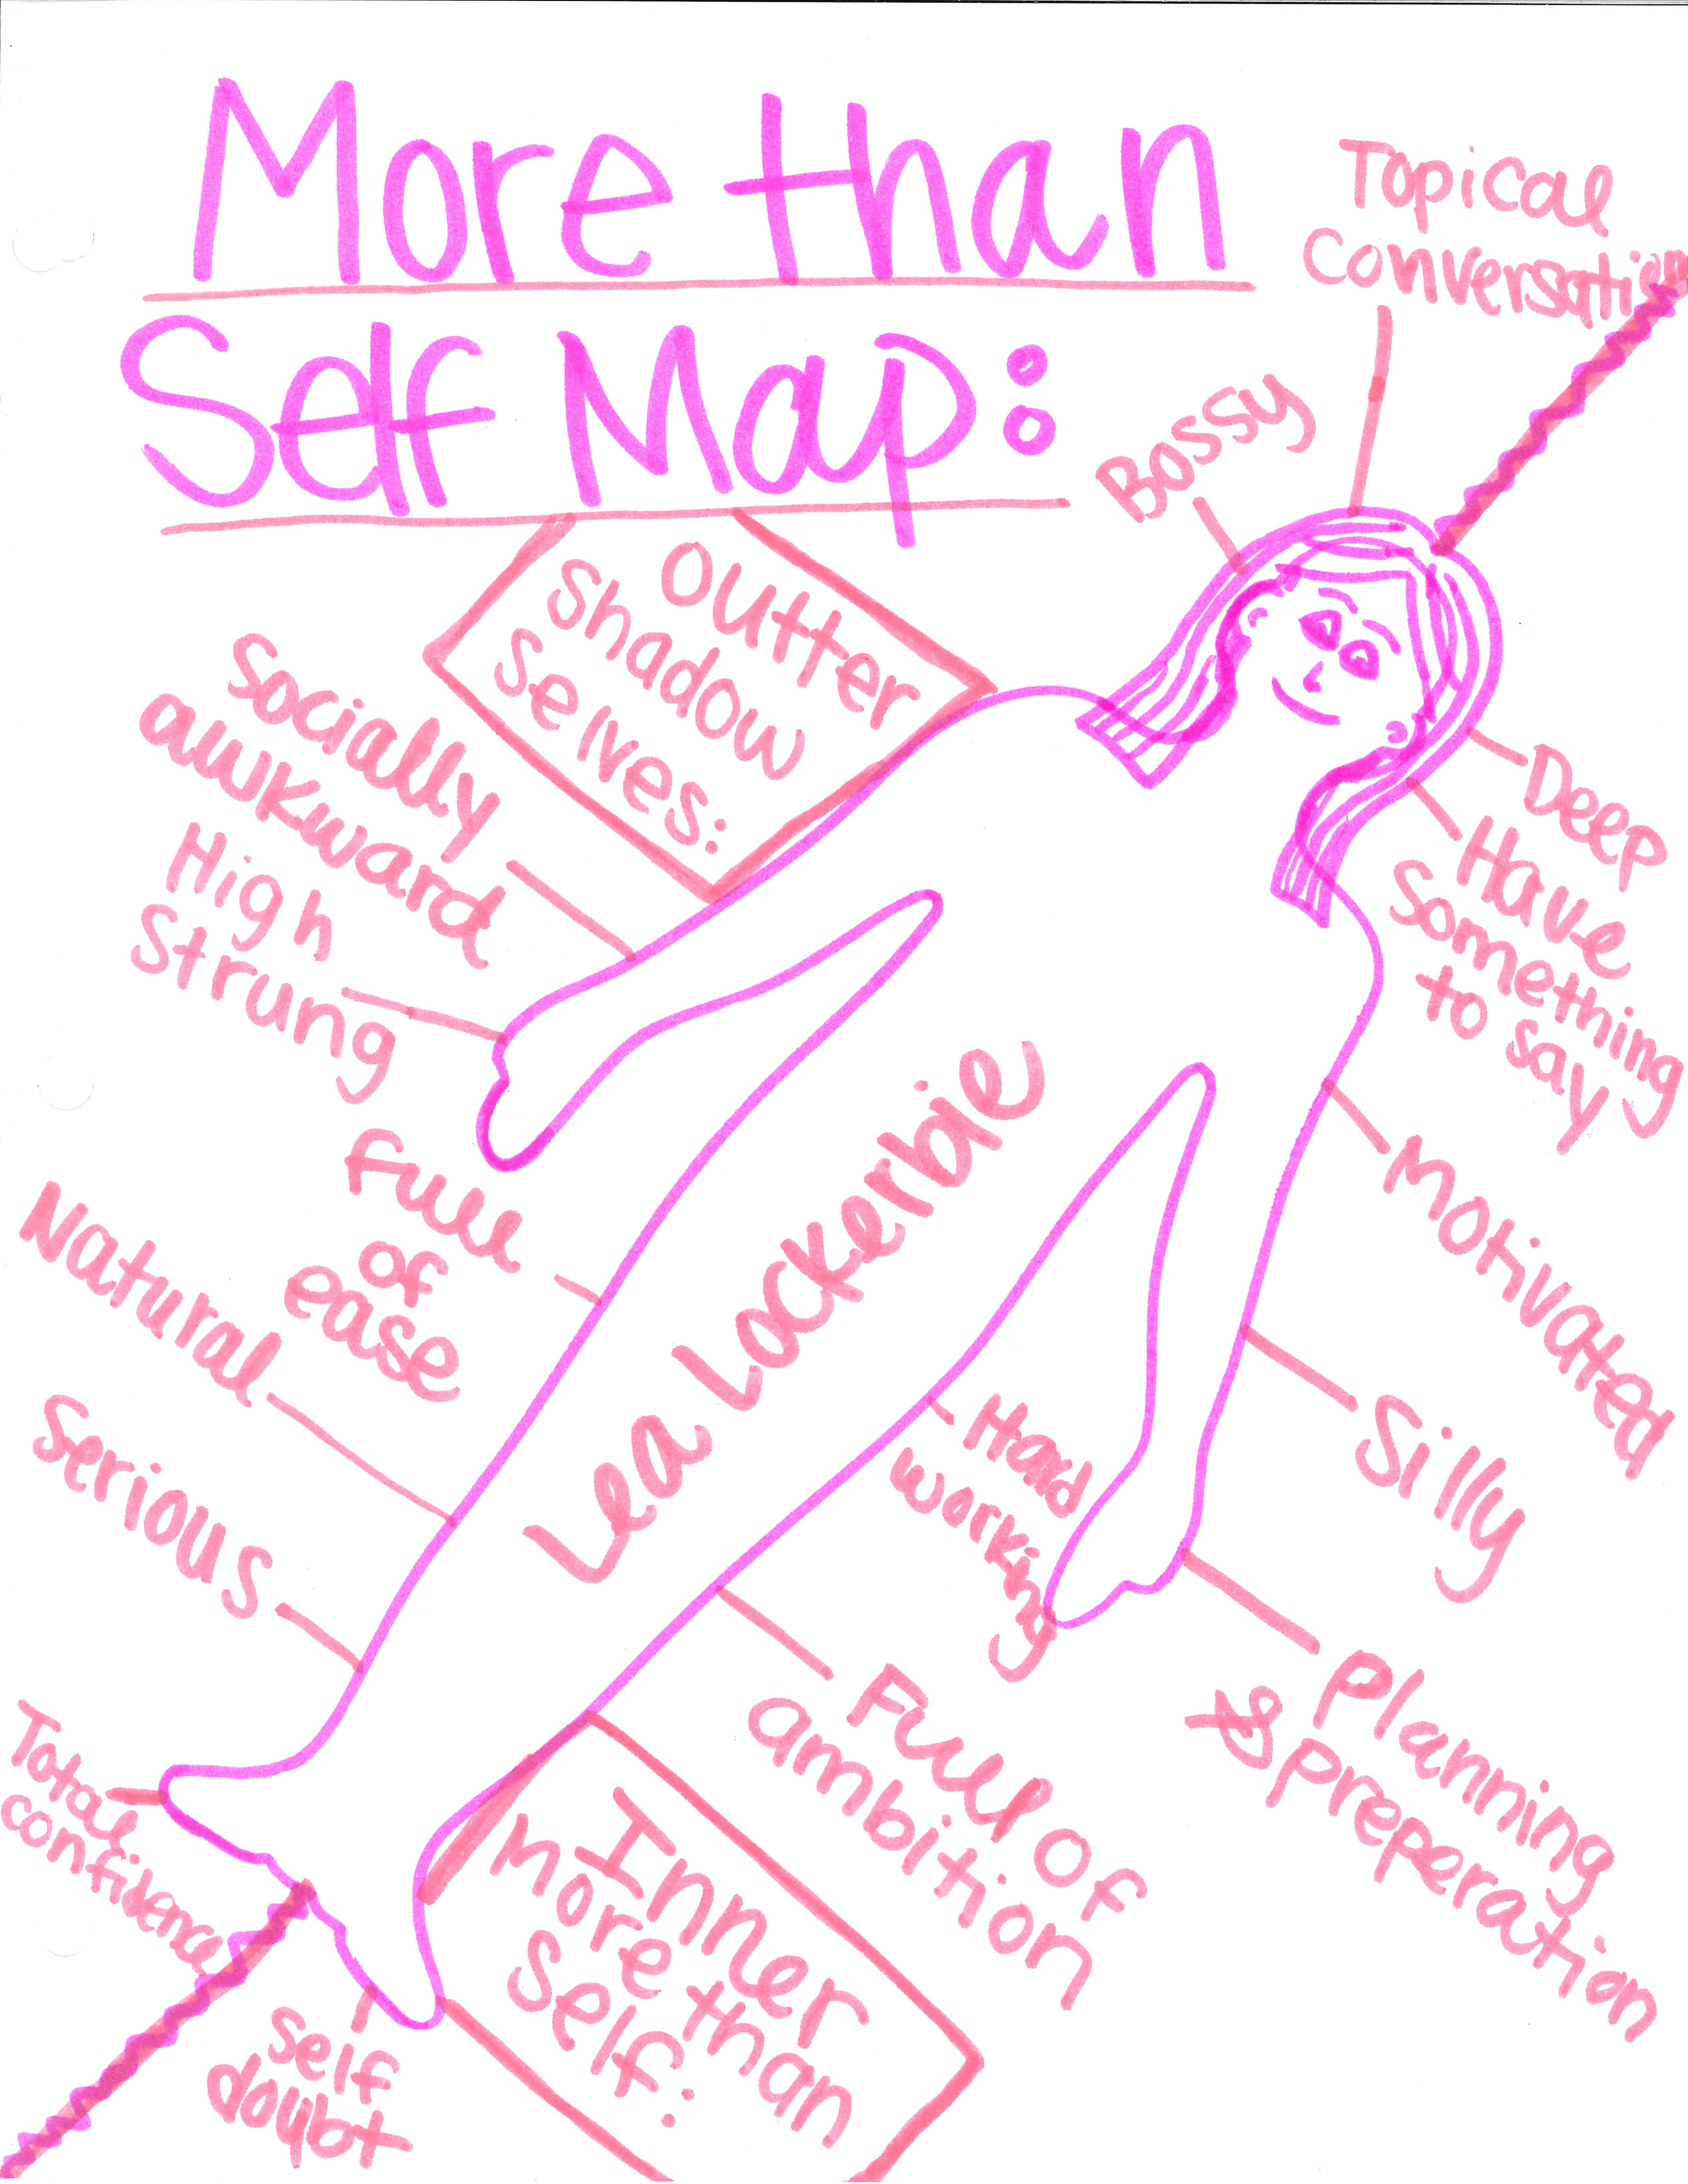 More than
Self Map:
Topical
Conversation
Bossy
Outter
Shadow
Selves:
Socially
awkward
High
Strung
Full
of
ease
Natural
Serious
Total
confidence
Lea Lockerbie
Deep
Have
something
to say
Motivated
Silly
Planning
& preperation
Hard
working
Full of
ambition
Inner
more than
Self:
Self
doubt